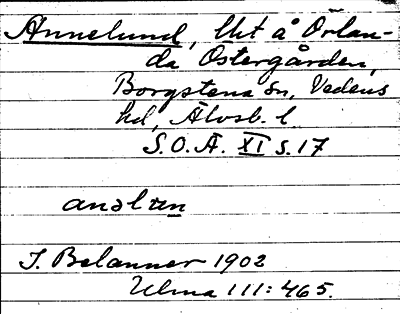 Annelund, lht å Örlan-
da Östergården,
Borgstena sn, Vedens
hd, Älvsb. l
S.O.Ä. XI s. 17
anəlɯn
J. Belanner 1902
Ulma 111:465.